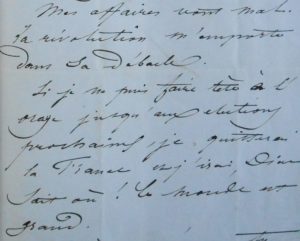 Mes affaires vont mal.
La révolution m'emporte
dans sa débâcle.
Si je ne puis faire tête à l'
orage jusqu'aux élections
prochaines, je quitterai
la France et j'irai, Dieu
sait où ! Le monde est
grand.